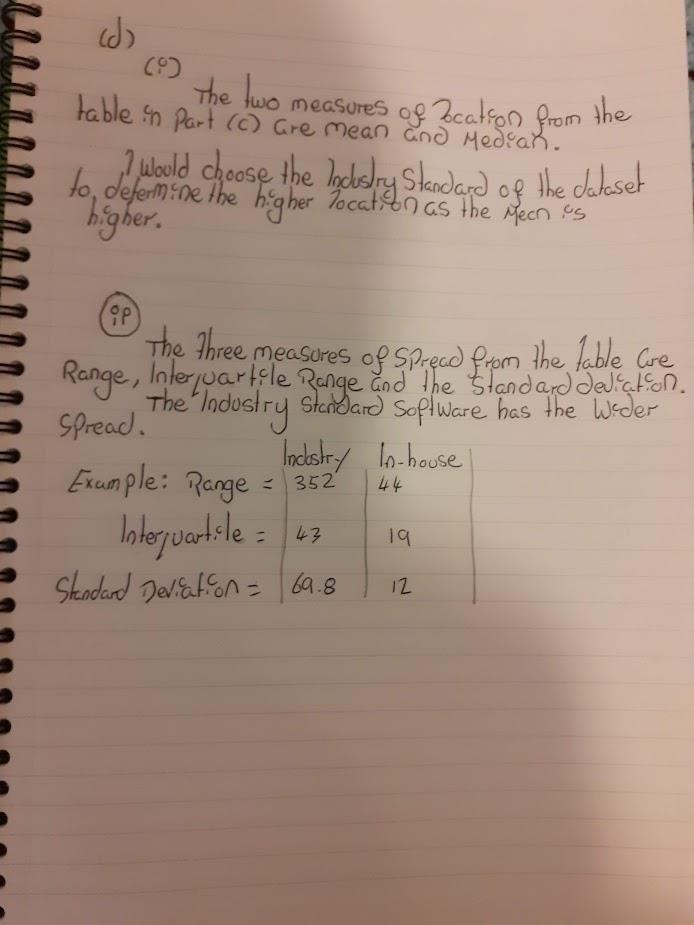 (d)
(i)
The two measures of location from the
table in Part (c) are mean and Median.
I would choose the Industry Standard of the dataset
to determine the higher location as the Mean is
higher.
(ii)
The three measures of spread from the table are
Range, Interquartile Range and the standard deviation.
The Industry Standard Software has the wider
spread.
Industry In-house
Example: Range = 352 44
Interquartile = 43 19
Standard Deviation = 69.8 12